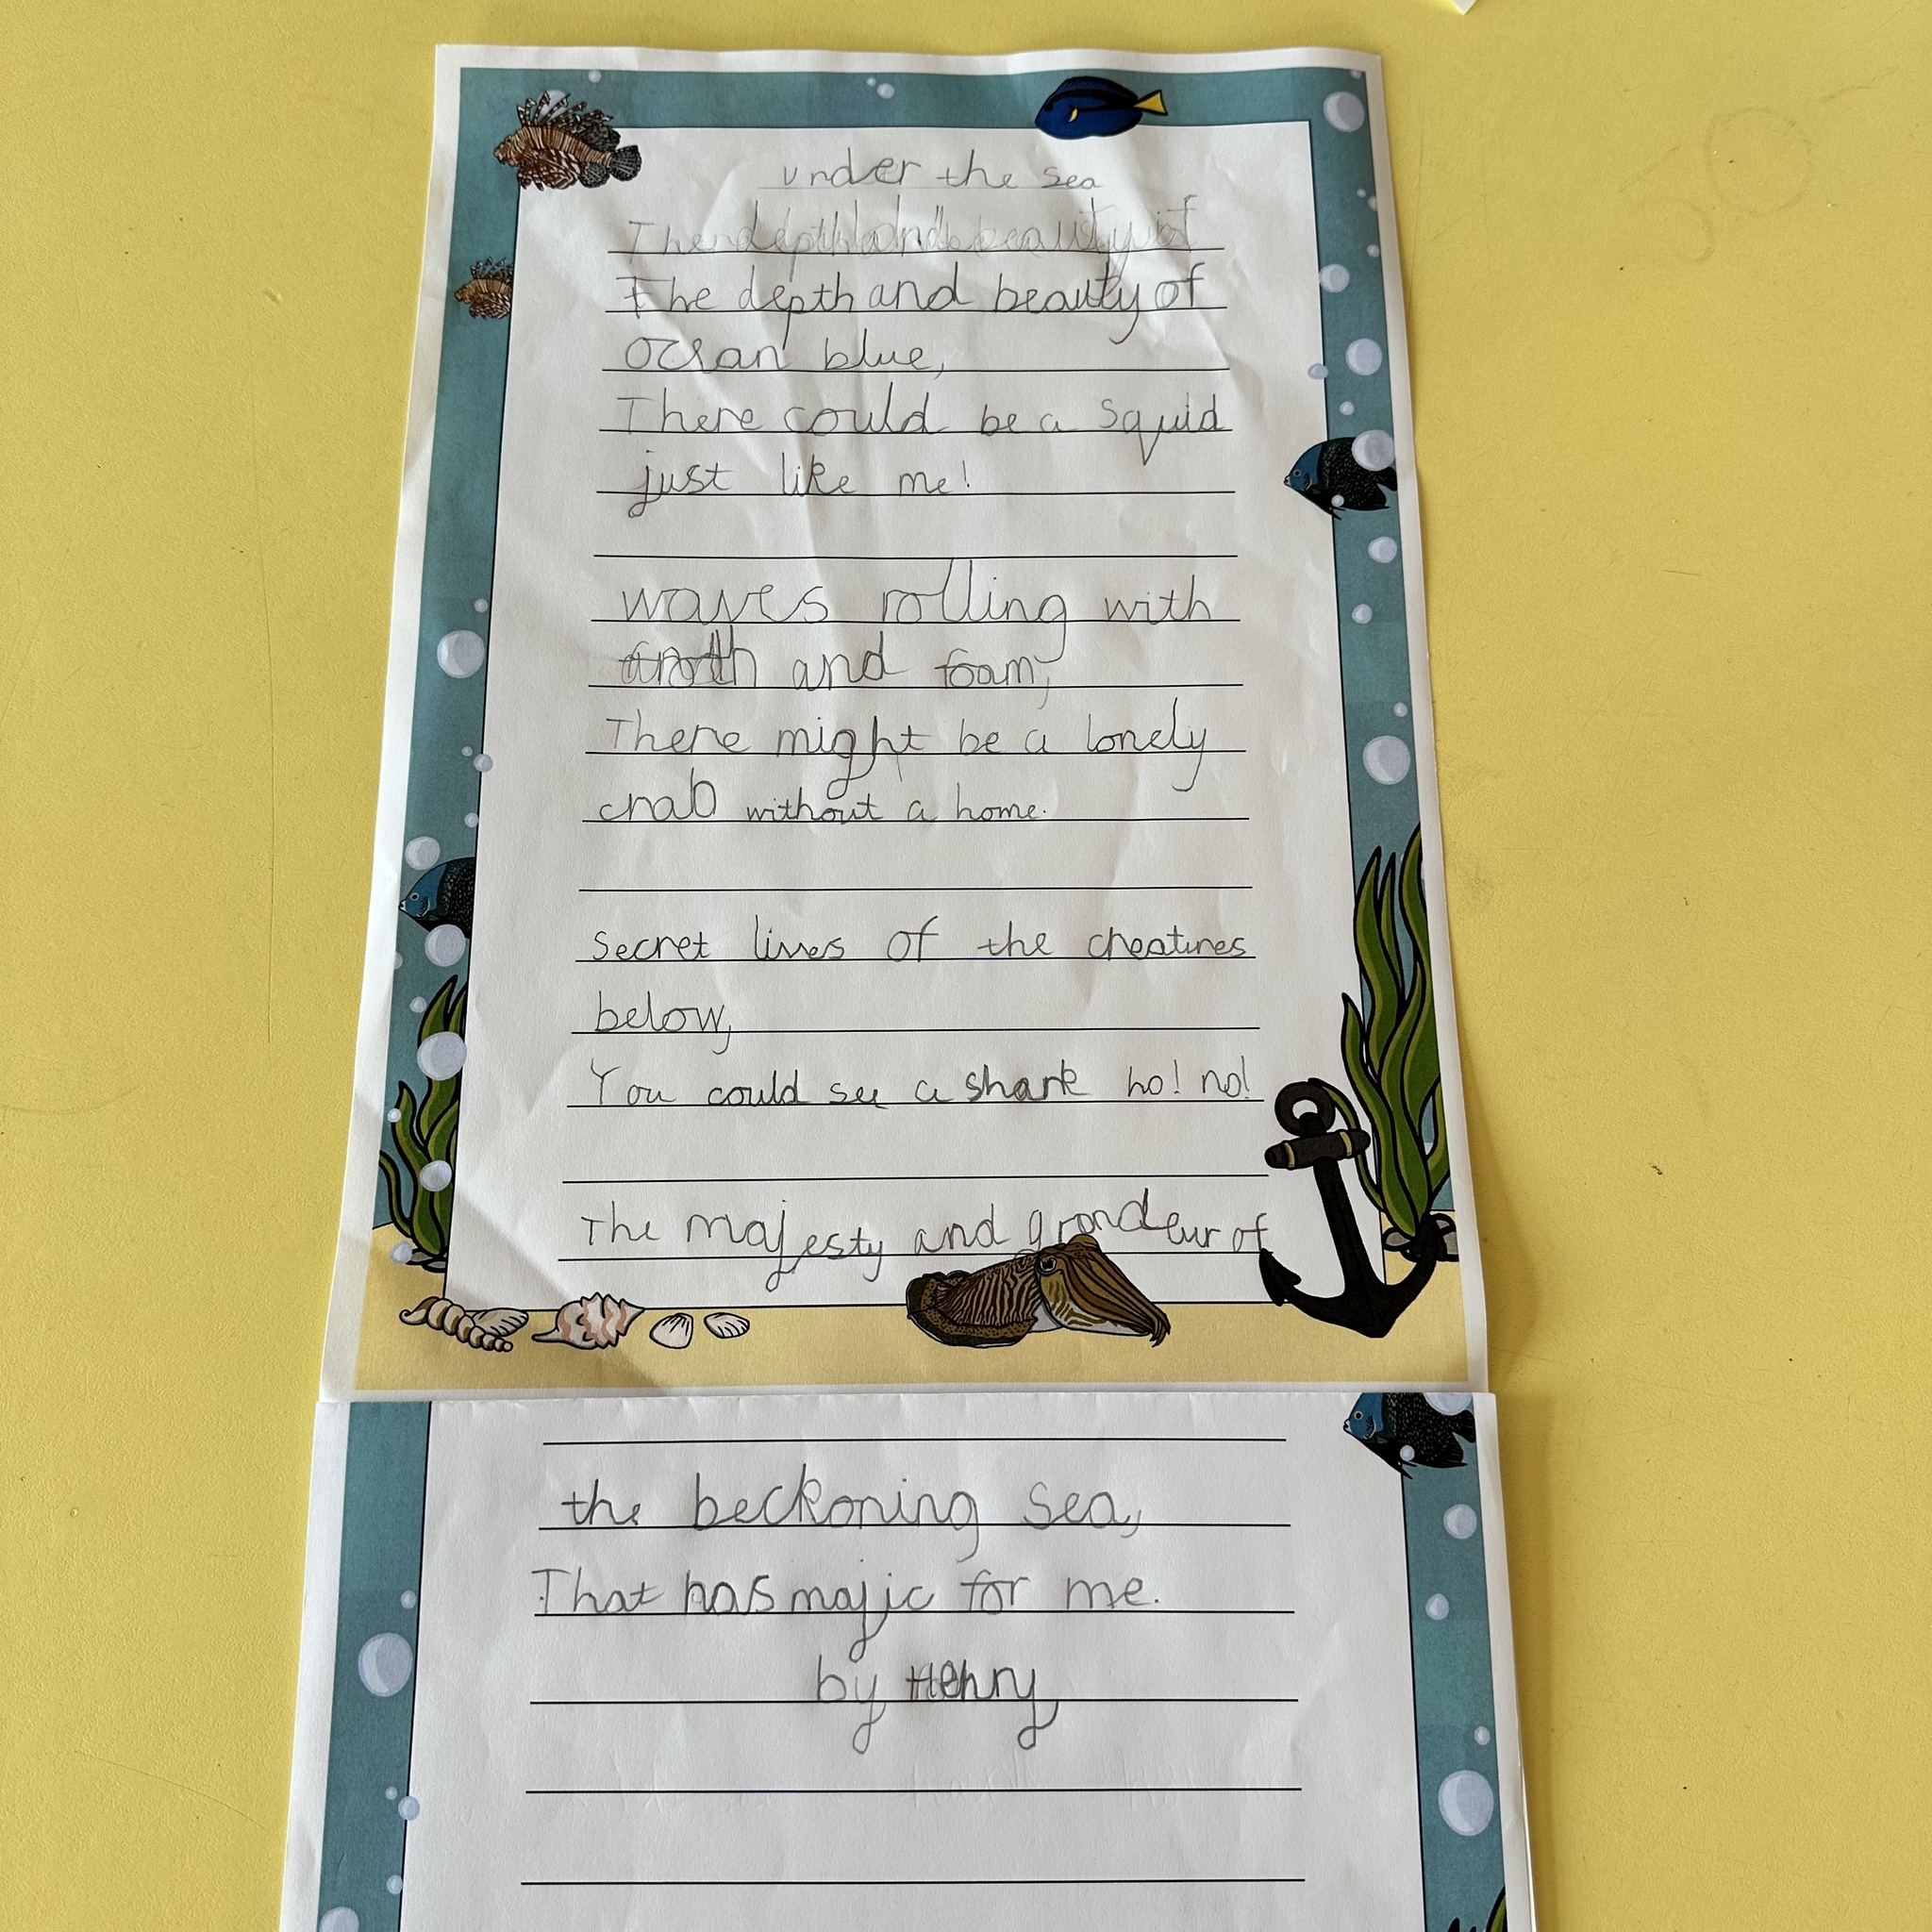 under the sea
The depth and beauty of
The depth and beauty of
ocean blue,
There could be a squid
just like me!
waves rolling with
froth and foam,
There might be a lonely
crab without a home.
Secret lives of the creatures
below,
You could see a shark ho! no!
The majesty and grandeur of
the beckoning sea,
That has majic for me.
by Henry